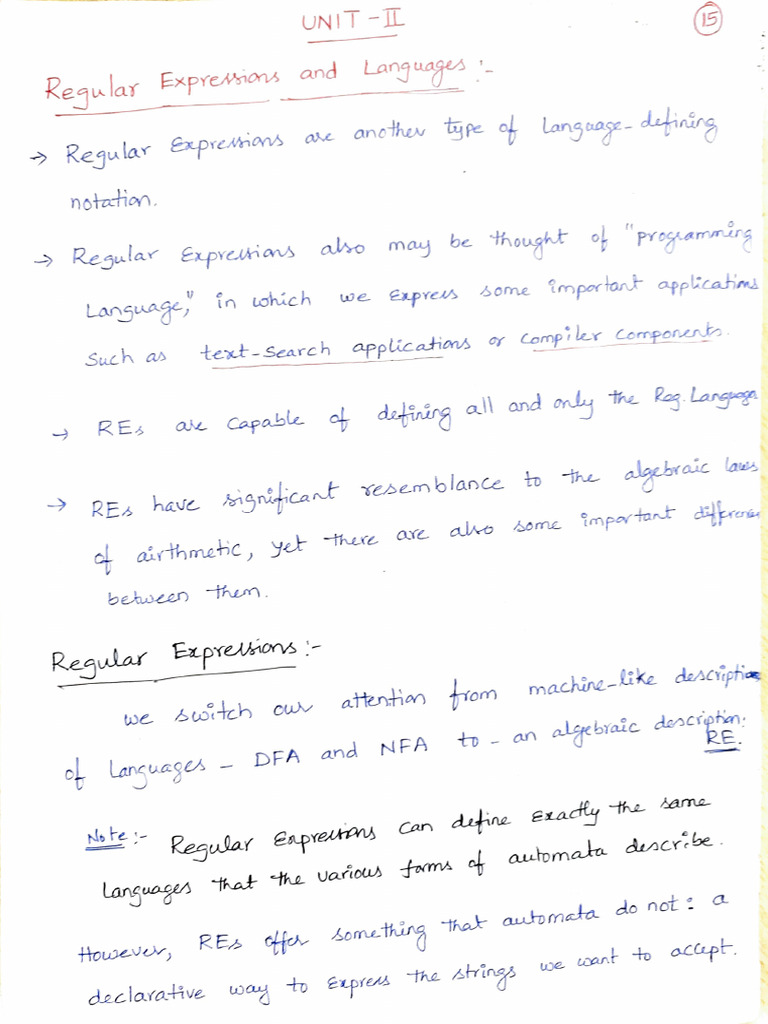 UNIT-II
15
Regular Expressions and Languages :-
→ Regular Expressions are another type of Language-defining
notation.
→ Regular Expressions also may be thought of "programming
Language," in which we express some important applications
Such as text-search applications or compiler components.
→ REs are capable of defining all and only the Reg. Languages
→ REs have significant resemblance to the algebraic laws
of airthmetic, yet there are also some important differences
between them.
Regular Expressions :-
we switch our attention from machine-like description
of Languages - DFA and NFA to - an algebraic description:
RE.
Note :- Regular Expressions can define Exactly the same
Languages that the various forms of automata describe.
However, REs offer something that automata do not : a
declarative way to Express the strings we want to accept.